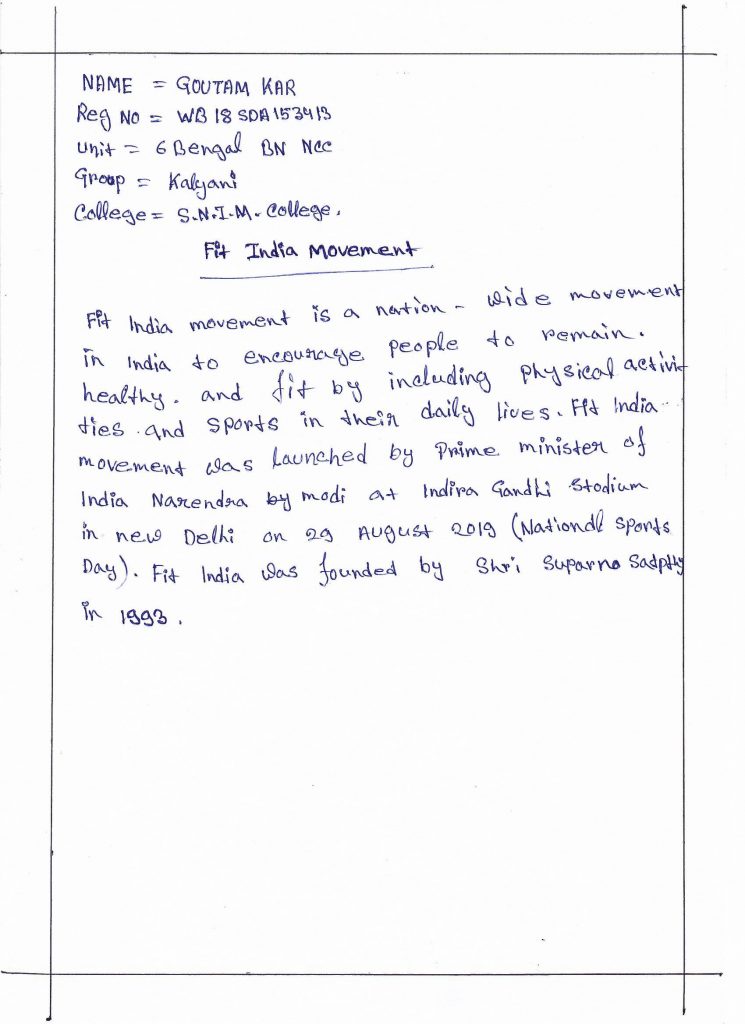 NAME = GOUTAM KAR
Reg No = WB 18 SDA 153413
Unit = 6 Bengal BN NCC
Group = Kalyani
College = S.N.I.M. College.
Fit India Movement
Fit India movement is a nation - wide movement
in India to encourage people to remain.
healthy. and fit by including physical activi
ties and sports in their daily lives. Fit India
movement was launched by Prime minister of
India Narendra by modi at Indira Gandhi Stadium
in new Delhi on 29 August 2019 (National Sports
Day). Fit India was founded by Shri Suparno Satpthy
in 1993.